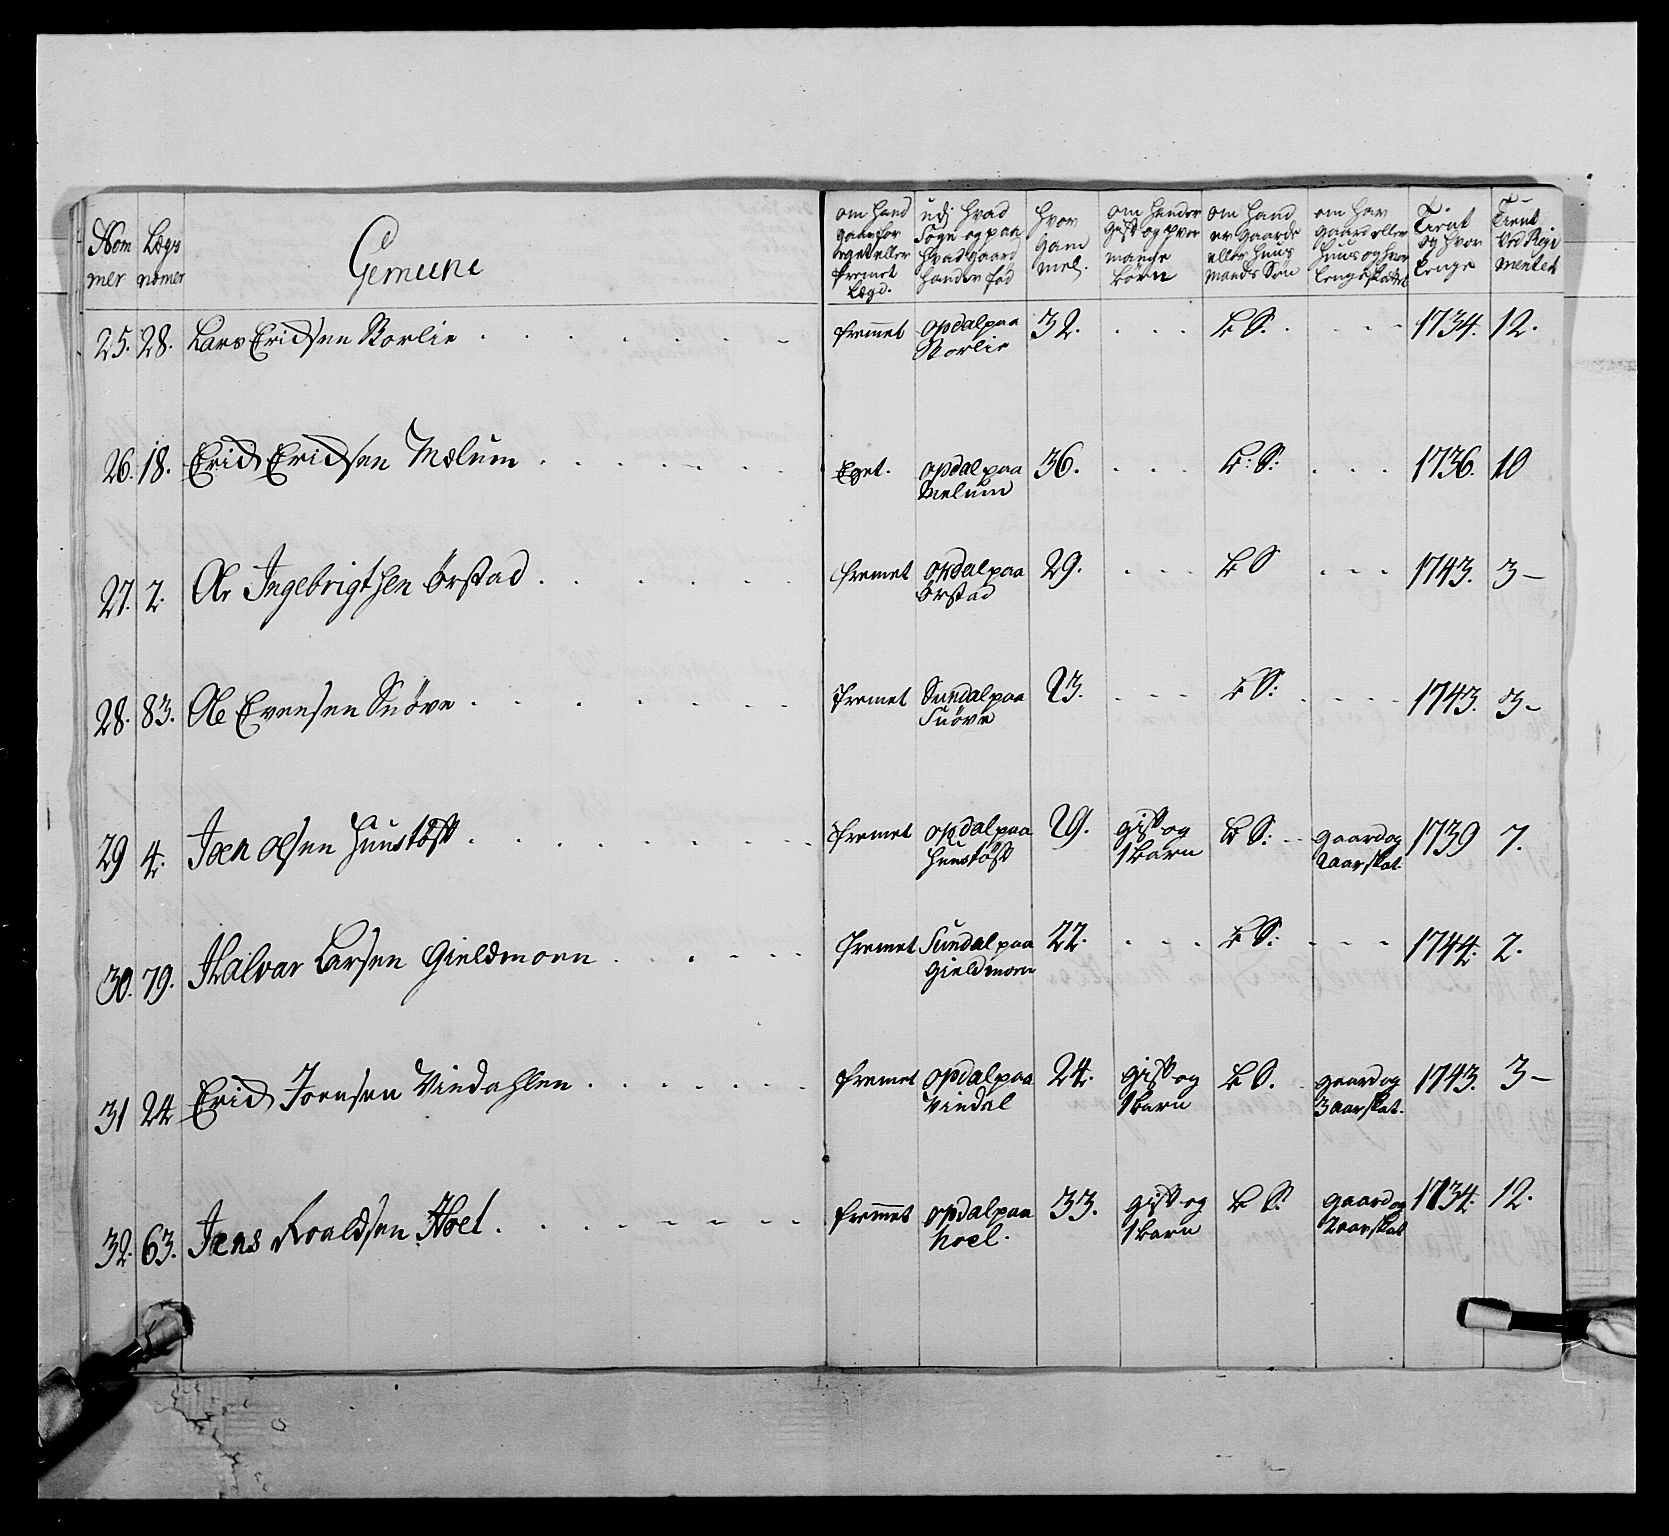 Nom mer
Lægs nomer
Gemeene
om hand gaar for eget eller fremet Lægd.
udj hvad Sogn og paa hvad gaard hand er fød
hvor gam mel.
om hand er gift og hvor mange börn
om hand er gaards eller huus mands Sön
om har gaard eller huus og hvor lenge skattet
Tient og hvor lenge
Tient Ved Regi mentet
25. 28. Lars Erichsen Storlie fremmet opdal paa Storlie 32. B S. 1734. 12.
26. 18. Erich Erichsen Mælum Eget. opdal paa Melum 36. B: S: 1736. 10
27. 2. Ole Ingebrigtsen Örstad fremet opdal paa Örstad 29. B S 1743. 3-
28. 83. Ole Evensen Snöve fremet Sundal paa Snöve 23. B S: 1743. 3-
29 4. Joen olsen Huustöft fremet opdal paa Huustöft 29. gift og 1 barn B S: gaard og 2 aar skat 1739 7.
30. 79. Halvor Larsen Gieldmoen fremet Sundal paa Gieldmoen 22. B S: 1744. 2.
31 24 Erich Joensen Vindahlen fremet opdal paa Vindal 24. gift og 1 barn B S. gaard og 3 aar skat. 1743. 3-
32. 63. Jens Roaldsen Hoel fremmet opdal paa hoel. 33. gift og 1 barn B S. gaard og 2 aar skat 1734. 12.